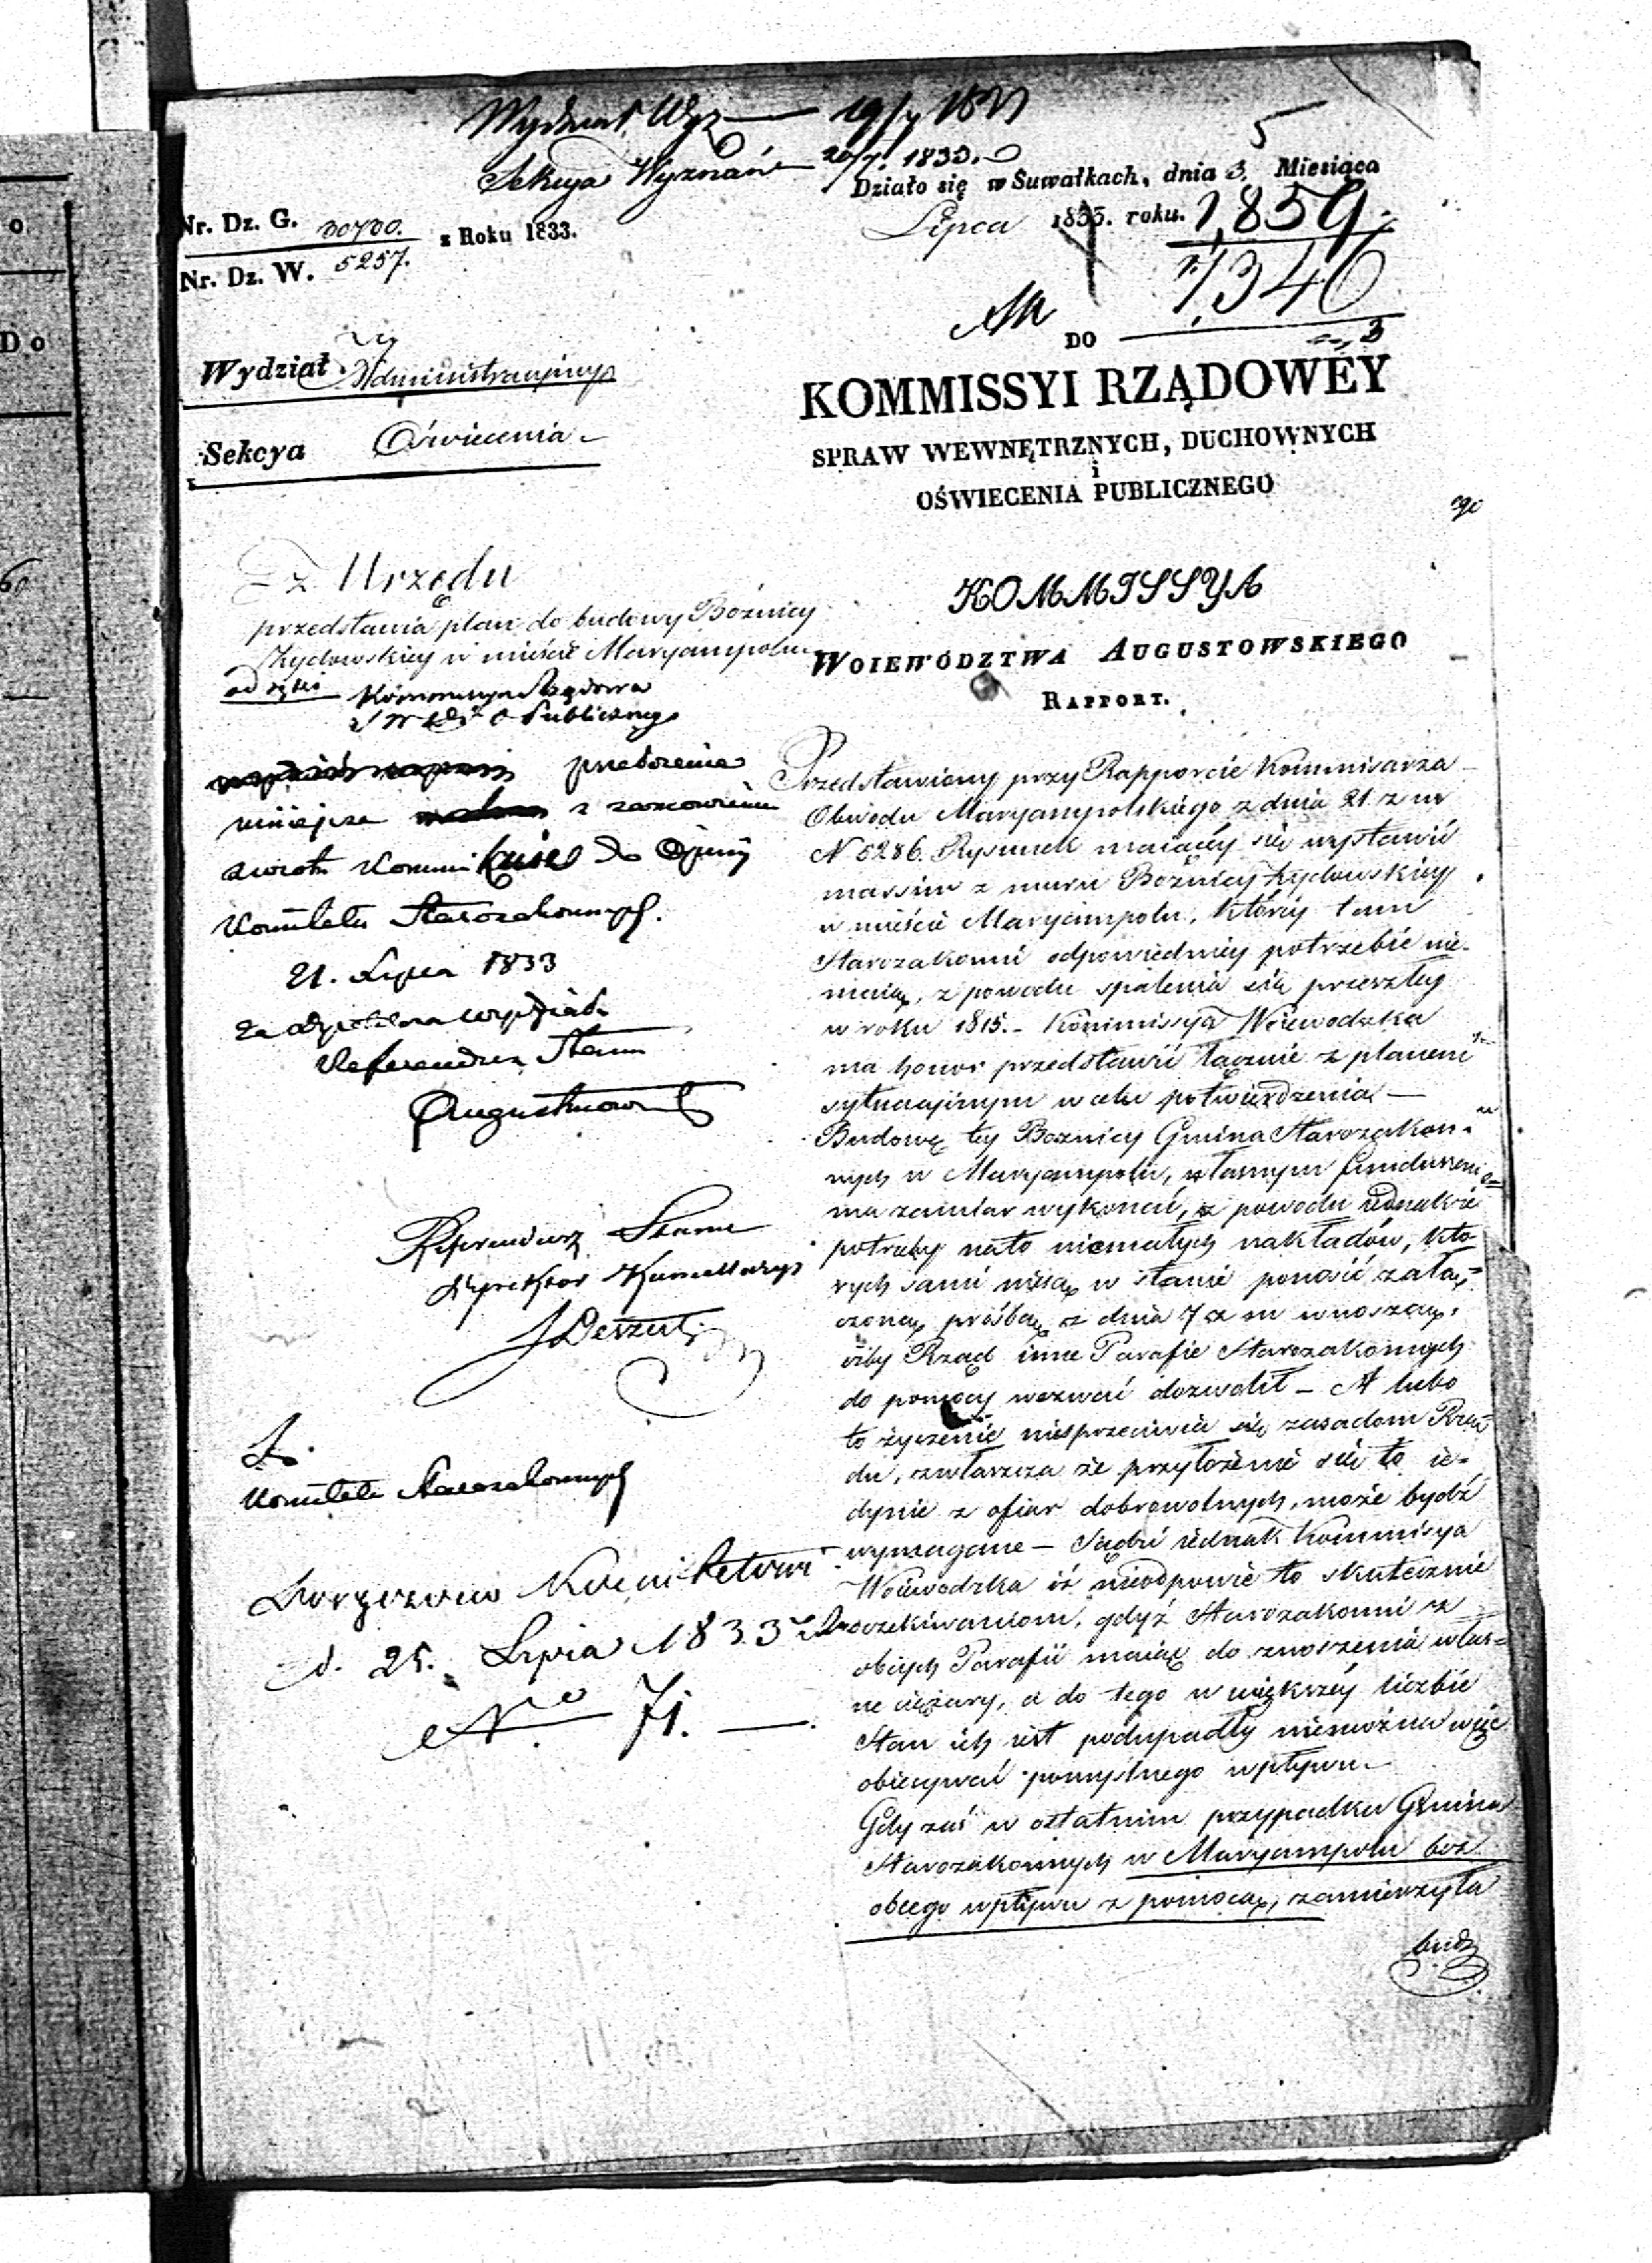 Wydział Wyz 19/7 1833
Sekcya Wyznań 20/7. 1833.
Działo się w Suwałkach, dnia 3. Miesiąca
Lipca 1833. roku.
1,859.
7,346
Nr. Dz. G. 30700.
Nr. Dz. W. 5257.
z Roku 1833.
DO
Wydział Administracyjny
Sekcya Oświecenia
KOMMISSYI RZĄDOWÉY
SPRAW WEWNĘTRZNYCH, DUCHOWNYCH
i
OŚWIECENIA PUBLICZNEGO
KOMMISSYA
WOIEWÓDZTWA AUGUSTOWSKIEGO
RAPPORT.
z Urzędu
przedstawia plan do budowy Boźnicy
Żydowskiey w mieście Maryampolu
Kommissya Rządowa
S W D i O Publicznego
przełożenie
niniejsze z zamówieniem
zwrotu kommunikuje do Opinii
Komitetu Starozakonnych.
21. Lipca 1833
Za Dyrektora Wydziału
Referendarz Stanu
Referendarz Stanu
Dyrektor Kancellaryi
Do
Komitetu Starozakonnych
Doręczono Komitetowi
d. 25. Lipca 1833 r.
No 71.
Przedstawiony przy Rapporcie Kommissarza
Obwodu Maryampolskiego z dnia 21 z m
N 5286. Rysunek maiącéy się wystawić
massiw z muru Boźnicy Żydowskiéy
w mieście Maryampolu, któréy tam
Starozakonni odpowiedniéy potrzebie nie-
maią, z powodu spalenia się przeszłéy
w roku 1815. - Kommissya Woiewodzka
ma honor przedstawić łącznie z planem
sytuacyinym w celu potwierdzenia -
Budowę téy Boznicy Gmina Starozakon-
nych w Maryampolu, własnym funduszem
ma zamiar wykonać, z powodu iednakże
potrzeby na to niemałych nakładów, któ-
rych sami niesą w stanie ponosić załą-
czoną prośbą z dnia 7 z m wnoszą,
iżby Rząd inne Parafie Starozakonnych
do pomocy wezwać dozwolił - A lubo
to życzenie niesprzeciwia się zasadom Rzą-
du, zwłaszcza że przyłożenie się to ie-
dynie z ofiar dobrowolnych, może bydź
wymagane - Sądzi iednak Kommissya
Woiewodzka iż nieodpowie to skutecznie
oczekiwaniom, gdyż Starozakonni z
obcych Parafii maiąc do znoszenia włas-
ne ciężary, a do tego w większéy liczbie
Stan ich iest podupadły niemożna więc
obiecywać pomyślnego wpływu.
Gdy zaś w ostatnim przypadku Gmina
Starozakonnych w Maryampolu bez
obcego wpływu z pomocą, zamierzyła
bud